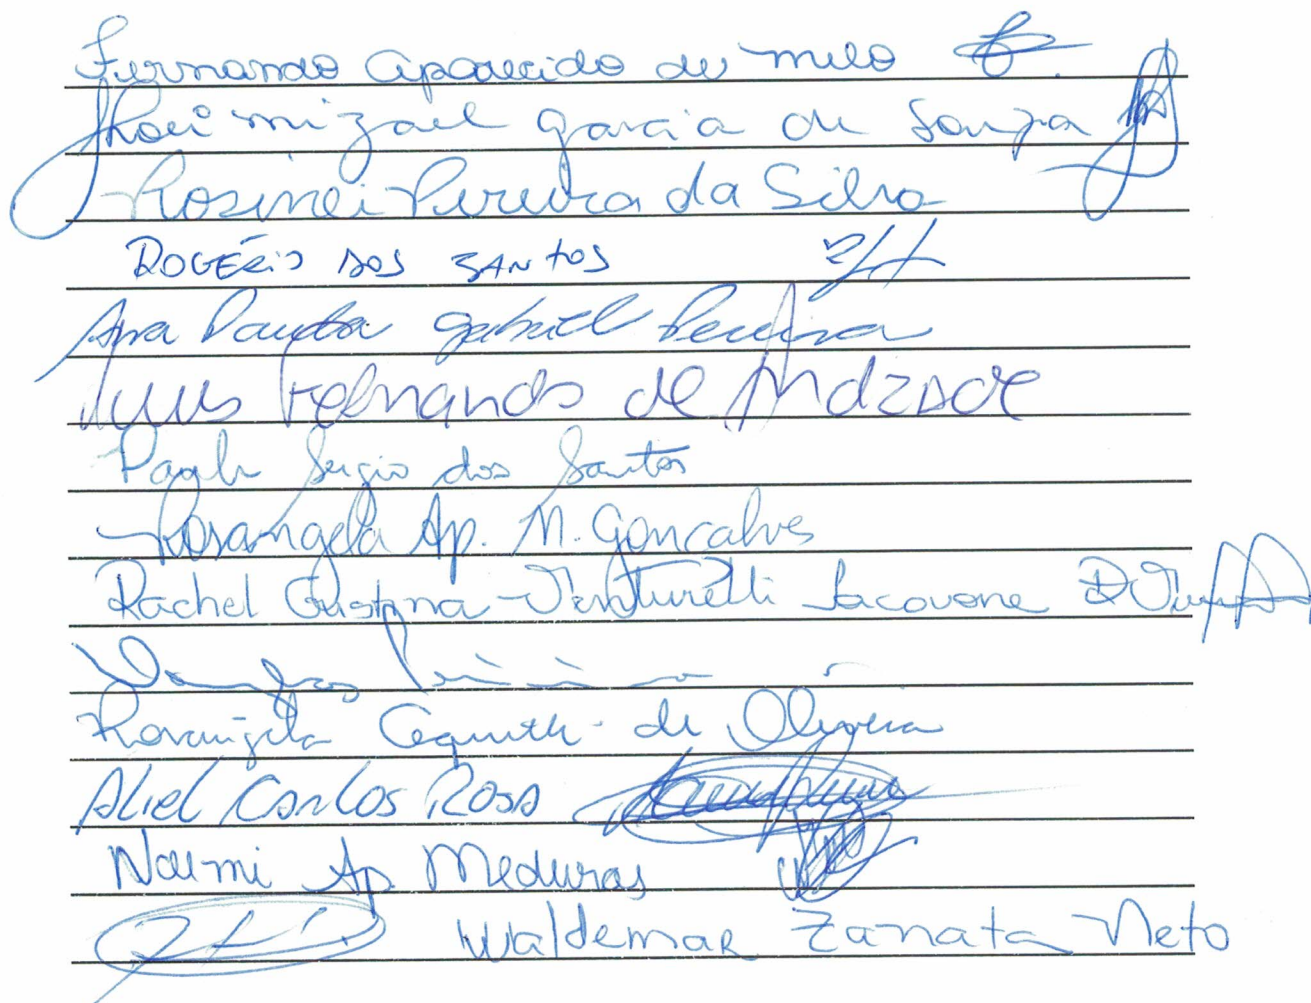 Fernando Aparecido de Melo
mizael Garcia de Souza
Rosinei Pereira da Silva
ROGÉRIO DOS SANTOS
Ana Paula Gabriel Pereira
Luis Fernando de Andrade
Paulo Sergio dos Santos
Rosangela Ap. M. Gonçalves
Rachel Cristina Venturelli Iacovone
Rosangela de Oliveira
Aliel Carlos Rosa
Noemi Ap
Waldemar Zanata Neto